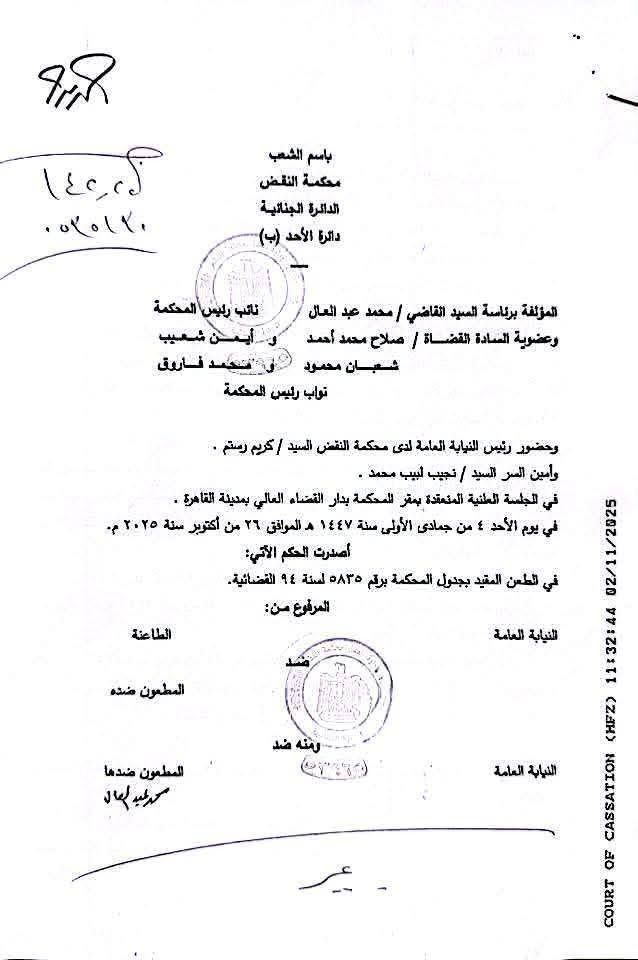 باسم الشعب
محكمة النقض
الدائرة الجنائية
دائرة الأحد (ب)
المؤلفة برئاسة السيد القاضي / محمد عبد العال نائب رئيس المحكمة
وعضوية السادة القضاة / صلاح محمد أحمد و أيمن شعيب
شعبان محمود و محمد فاروق
نواب رئيس المحكمة
وحضور رئيس النيابة العامة لدى محكمة النقض السيد / كريم رستم .
وأمين السر السيد / نجيب لبيب محمد .
في الجلسة العلنية المنعقدة بمقر المحكمة بدار القضاء العالي بمدينة القاهرة .
في يوم الأحد ٤ من جمادى الأولى سنة ١٤٤٧ هـ الموافق ٢٦ من أكتوبر سنة ٢٠٢٥ م.
أصدرت الحكم الآتي:
في الطعن المقيد بجدول المحكمة برقم ٥٨٣٥ لسنة ٩٤ القضائية.
المرفوع من:
النيابة العامة الطاعنة
ضد
المطعون ضده
ومنه ضد
النيابة العامة المطعون ضدها
محمد عبد العال
COURT OF CASSATION (MFZ) 11:32:44 02/11/2025